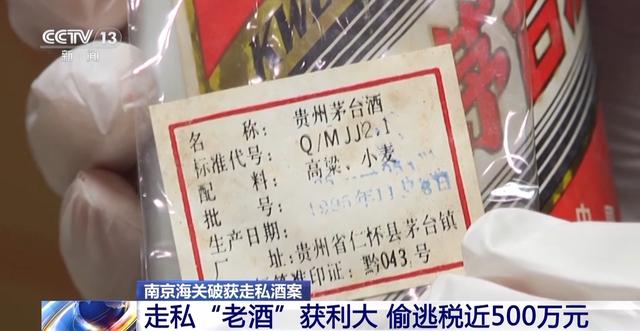 CCTV 13
新闻
KWE
茅台
名 称： 贵州茅台酒
标准代号： Q/MJJ2.1
配 料： 高粱、小麦
批 号：
生产日期： 1995年11月
厂 址：贵州省仁怀县茅台镇
签准印证：黔043号
中
南京海关破获走私酒案
走私“老酒”获利大 偷逃税近500万元